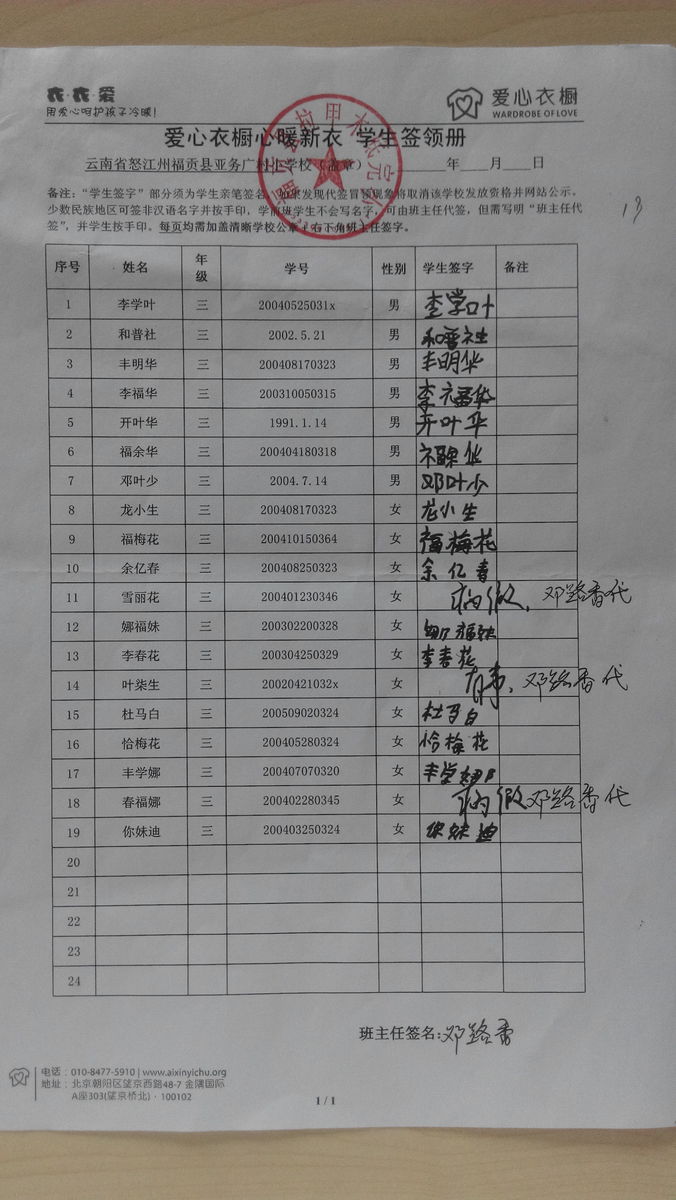 衣·衣·爱
用爱心呵护孩子冷暖!
爱心衣橱
WARDROBE OF LOVE
爱心衣橱心暖新衣 学生签领册
云南省怒江州福贡县亚务广村小学校（盖章） 年 月 日
备注：“学生签字”部分须为学生亲笔签名，如果发现代签冒领现象将取消该学校发放资格并网站公示。
少数民族地区可签非汉语名字并按手印，学前班学生不会写名字，可由班主任代签，但需写明“班主任代
签”，并学生按手印。每页均需加盖清晰学校公章！右下角班主任签字。
13
序号 姓名 年级 学号 性别 学生签字 备注
1 李学叶 三 20040525031x 男 李学叶
2 和普社 三 2002.5.21 男 和普社
3 丰明华 三 200408170323 男 丰明华
4 李福华 三 200310050315 男 李福华
5 开叶华 三 1991.1.14 男 开叶华
6 福余华 三 200404180318 男 福余华
7 邓叶少 三 2004.7.14 男 邓叶少
8 龙小生 三 200408170323 女 龙小生
9 福梅花 三 200410150364 女 福梅花
10 余亿春 三 200408250323 女 余亿春
11 雪丽花 三 200401230346 女 病假，邓路香代
12 娜福妹 三 200302200328 女 娜福妹
13 李春花 三 200304250329 女 李春花
14 叶柒生 三 20020421032x 女 有事，邓路香代
15 杜马白 三 200509020324 女 杜马白
16 恰梅花 三 200405280324 女 恰梅花
17 丰学娜 三 200407070320 女 丰学娜
18 春福娜 三 200402280345 女 病假邓路香代
19 你妹迪 三 200403250324 女 你妹迪
20
21
22
23
24
班主任签名:邓路香
电话：010-8477-5910 | www.aixinyichu.org
地址：北京朝阳区望京西路48-7 金隅国际
A座303(望京桥北)·100102
1 / 1